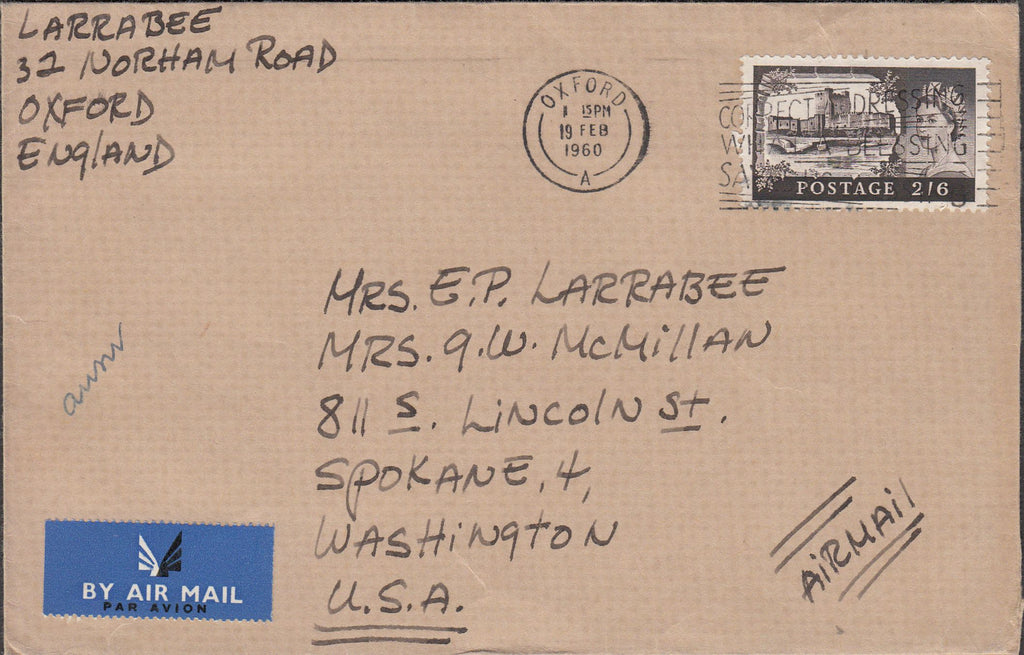 LARRABEE
32 NORHAM ROAD
OXFORD
ENGLAND
OXFORD
1 15PM
19 FEB
1960
A
CORRECT ADDRESSING
WINS A BLESSING
SA
POSTAGE 2/6
MRS. E.P. LARRABEE
MRS. G.W. McMillAN
811 S. LINCOLN St.
SPOKANE, 4,
WASHiNgtoN
U.S.A.
BY AIR MAIL
PAR AVION
AiRMAil